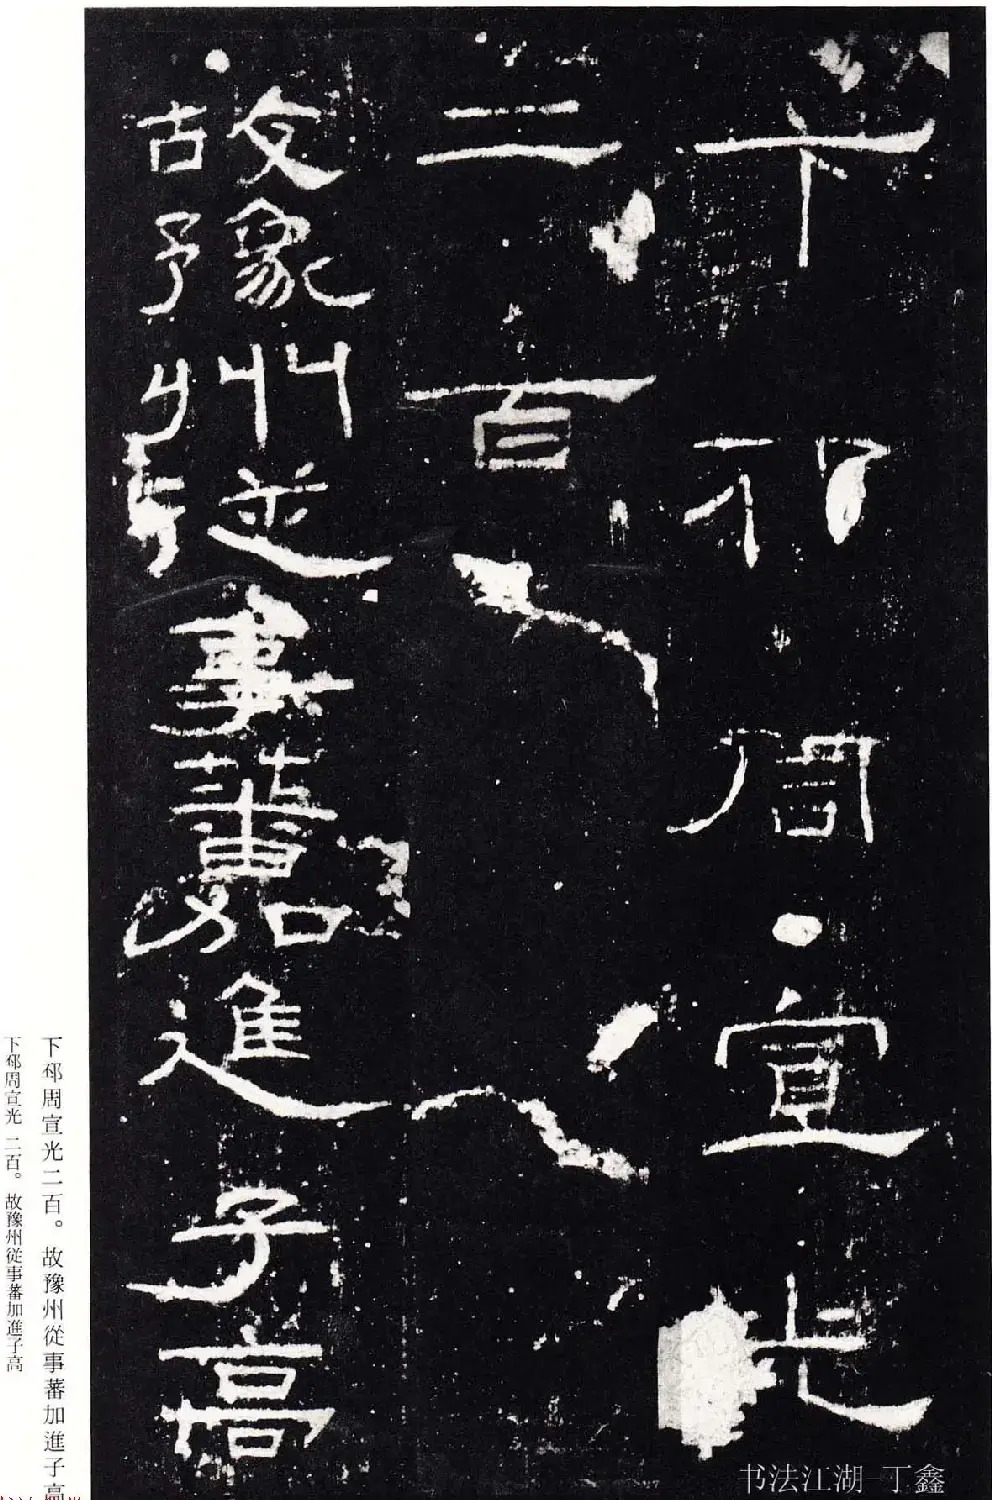 下邳周宣光
二百
故豫州從事蕃加進子高
下邳周宣光二百。故豫州從事蕃加進子高
下邳周宣光 二百。故豫州從事蕃加進子高
书法江湖 丁鑫